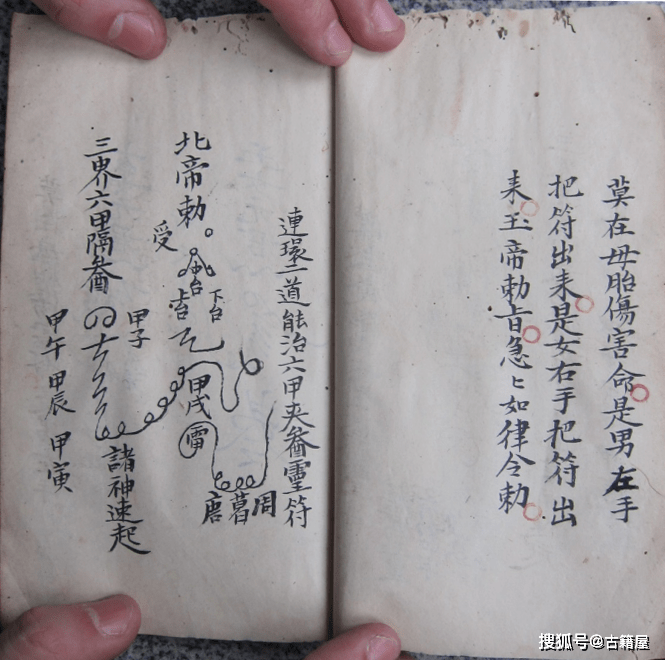 莫在母胎傷害命是男左手
把符出来是女右手把符出
来玉帝勅旨急々如律令勅
連環二道能治六甲夾靈符
北帝勅。
受
下台
甲戌
雷
周
葛
唐
三界六甲隔
甲子
諸神速起
甲午 甲辰 甲寅
搜狐号@古籍屋